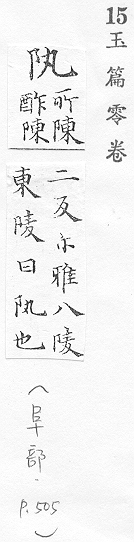 15 玉篇零卷
阠
所陳
酢陳
二反尓雅八陵
東陵曰阠也
(阜部.p.505)